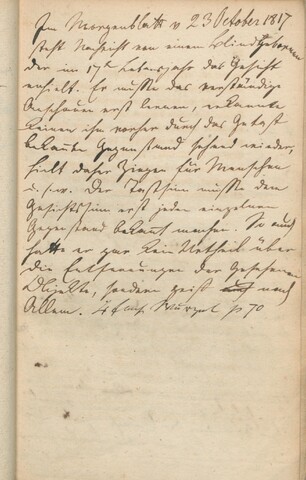 Im Morgenblatt v 23 October 1817
steht Nachricht von einem Blindgebornen
der im 17t Lebensjahr das Gesicht
erhielt. Er mußte das verständige
Anschauen erst lernen, erkannte
keinen ihm vorher durch das Getast
bekannten Gegenstand sehend wieder,
hielt daher Ziegen für Menschen
u.s.w. Der Tastsinn mußte dem
Gesichtssinn erst jeden einzelnen
Gegenstand bekannt machen. So auch
hatte er gar kein Urtheil über
die Entfernungen der gesehenen
Objekte, sondern griff nach
Allem. Wurzel p 70